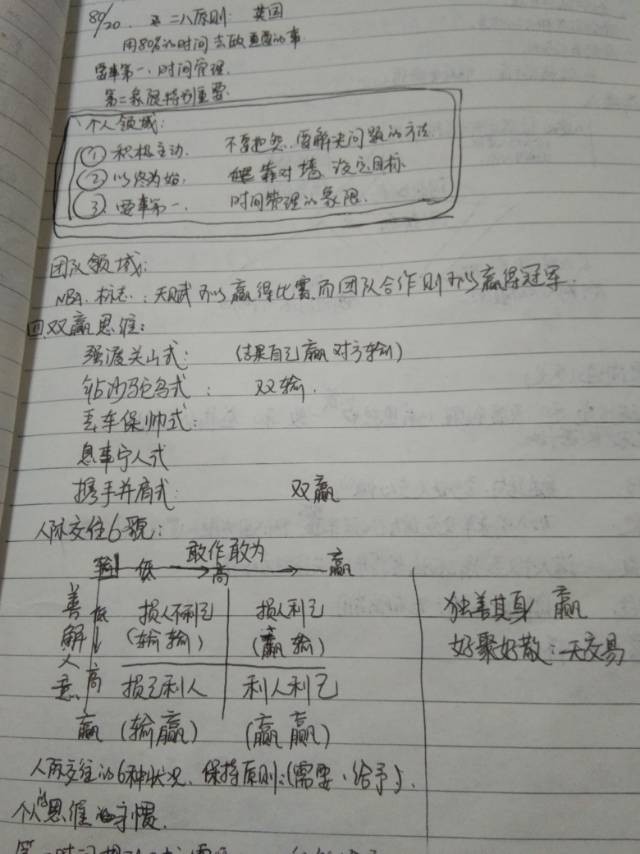 80/20. 二八原则 英国
用80%的时间去做重要的事
要事第一、时间管理.
第二象限特别重要.
个人领域:
① 积极主动. 不要抱怨.要解决问题的方法
② 以终为始. 靠对墙 设立目标
③ 要事第一. 时间管理的象限.
团队领域:
NBA.标志:天赋可以赢得比赛.而团队合作则可以赢得冠军.
四.双赢思维:
强渡关山式: (结果自己赢 对方输)
钻沙驼鸟式: 双输.
丢车保帅式:
息事宁人式
携手并肩式 双赢
人际交往6貌:
敢作敢为
输 低 → 高 → 赢
善解人意
低 损人不利己 损人利己
(输输) (赢输)
高 损己利人 利人利己
赢 (输赢) (赢赢)
独善其身 赢
好聚好散:无交易
人际交往的6种状况.保持原则:(需要、给予).
个人的思维习惯.